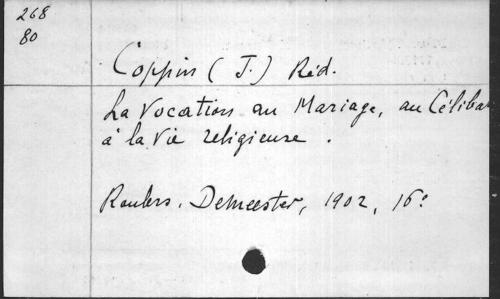 268
80
Coppin (J.) Réd.
La Vocation au Mariage, au Céliba
à la Vie religieuse.
Roulers. Demeester, 1902, 16°